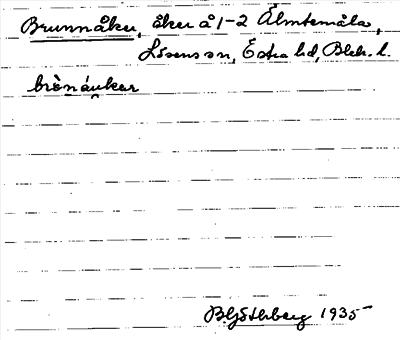 Brunnåker, åker å 1-2 Älmtemåla,
Lösen sn, Östra hd, Blek. l.
brònáu̯ker
B Götlberg 1935